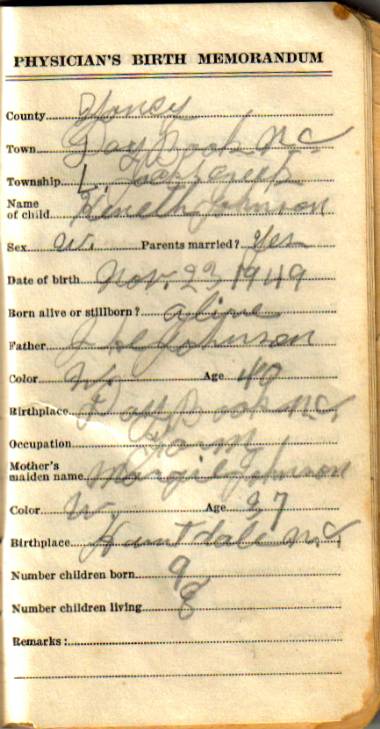 PHYSICIAN'S BIRTH MEMORANDUM
County Yancy
Town Day Book NC
Township Jacks Creek
Name of child Kenneth Johnson
Sex W. Parents married? Yes
Date of birth Nov. 23 1949
Born alive or stillborn? alive
Father Johnson
Color W. Age 40
Birthplace Day Book N.C.
Occupation Farm
Mother's maiden name Johnson
Color W. Age 37
Birthplace Huntdale N.C.
Number children born 9
Number children living 8
Remarks: